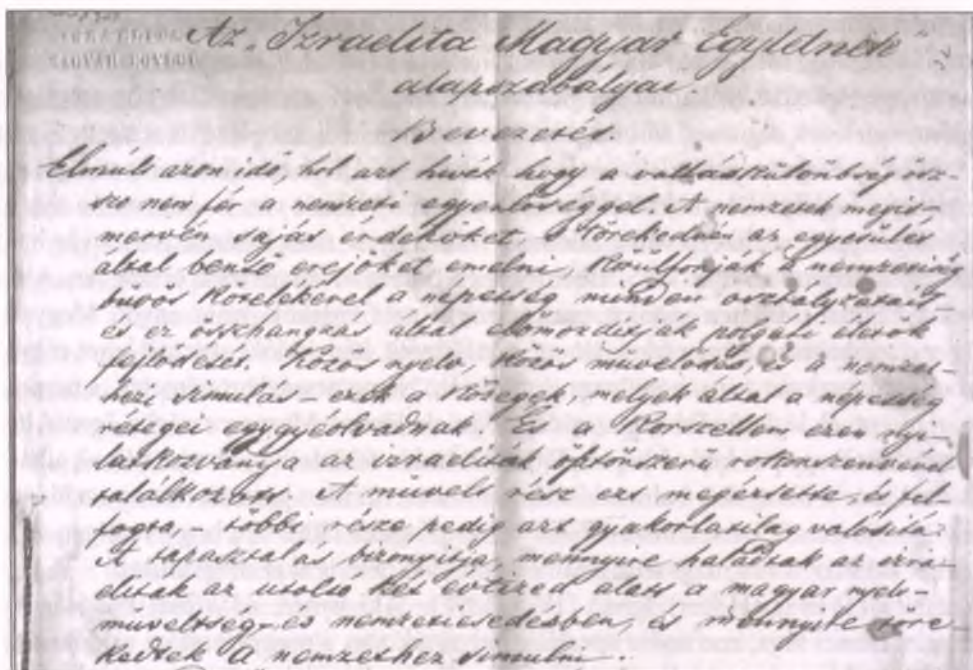 Az Izraelita Magyar Egyletnek
alapszabályai.
Bevezetés
Elmult azon idő, hol azt hivék hogy a valláskülönbség ösz-
sze nem fér a nemzeti egyenlőséggel. A nemzetek megis-
mervén saját érdekeiket s törekedvén az egyesülés
által benső erejöket emelni, a nemzetiség
büvös kötelékével a népesség minden osztályzatait
és ez összhangzás által polgári életök
fejlődését. Közös nyelv, közös művelődés, és a nemzet-
hez simulás – ezek a közegek, melyek által a népesség
rétegei eggyéolvadnak. És a Korszellem ezen nyi-
latkozványa az izraeliták rokonszenvével
találkozott. A művelt rész ezt megértette, és fel-
fogta, – többi része pedig azt gyakorlatilag valósitá.
A tapasztalás bizonyitja, mennyire haladtak az izra-
eliták az utolsó két evtized alatt a magyar nyelv-
műveltség- és nemzetiesedésben, és mennyire töre
kedtek a nemzethez simulni.